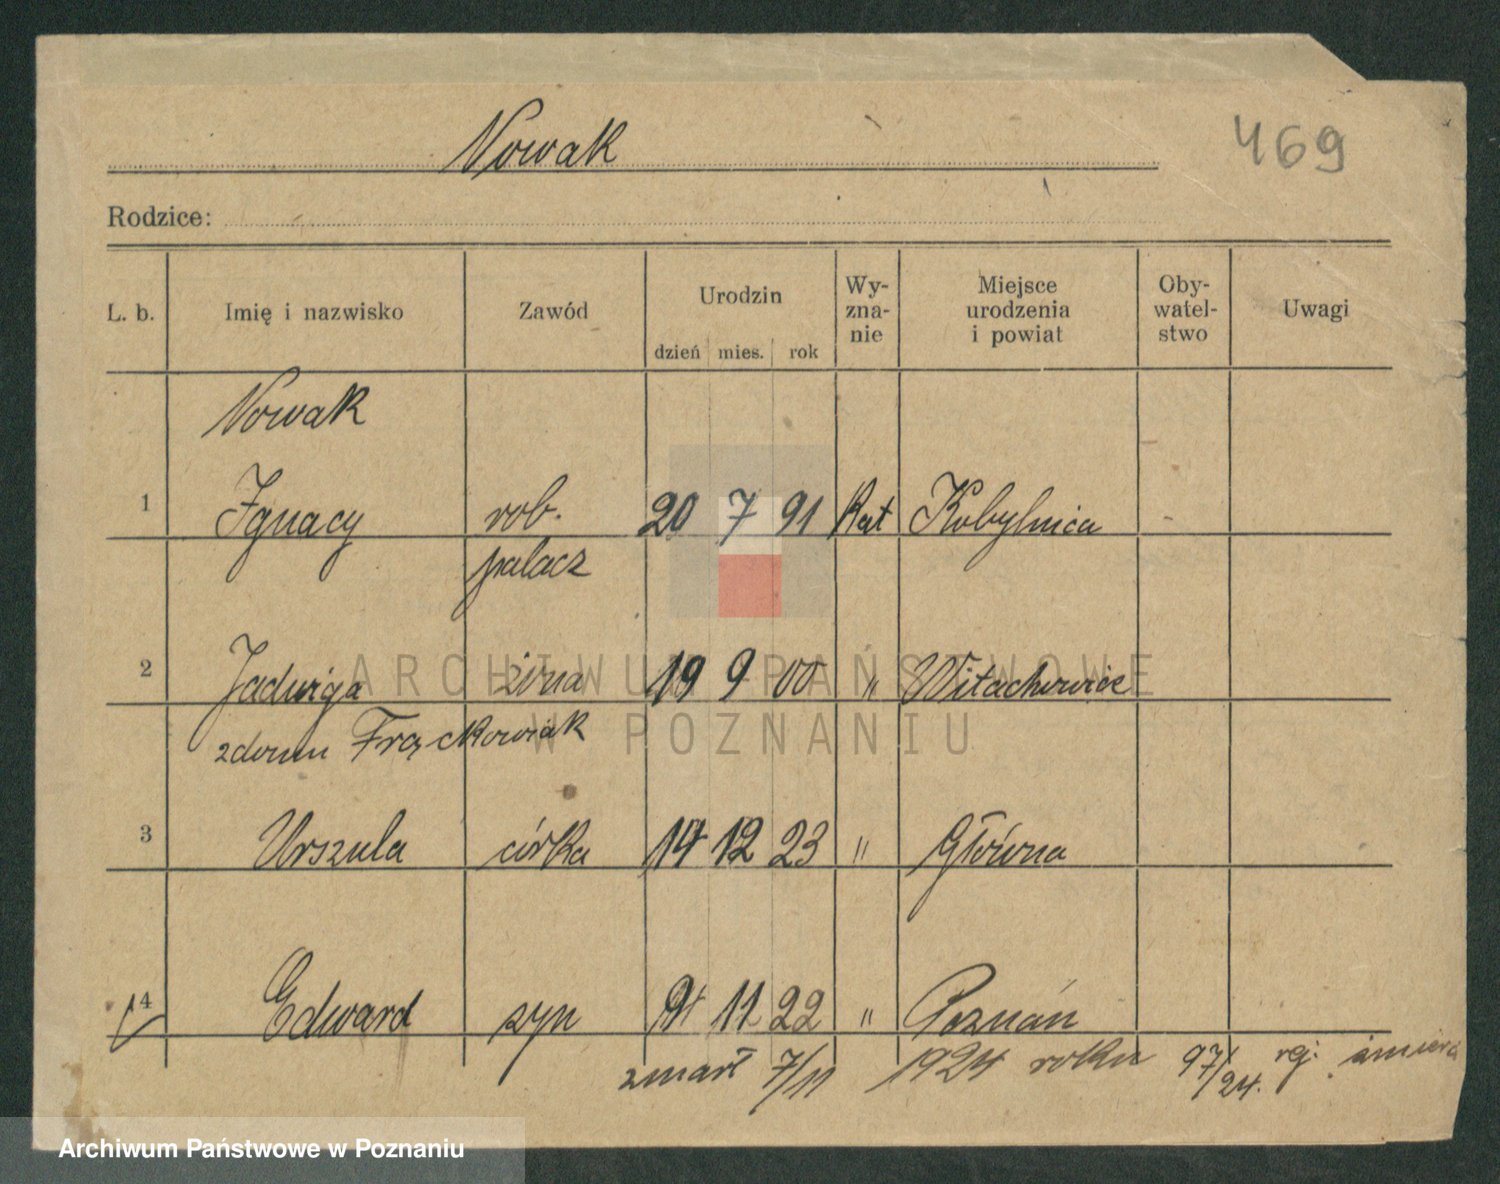 469
Nowak
Rodzice:
L. b. Imię i nazwisko Zawód Urodzin dzień mies. rok Wy-zna-nie Miejsce urodzenia i powiat Oby-watel-stwo Uwagi
Nowak
1 Ignacy rob. 20 7 91 Kat Kobylnica
palacz
2 Jadwiga żona 19 9 00 " Witachowice
zdomu Frąckowiak
3 Urszula córka 14 12 23 " Główna
4 Edward syn 11 22 " Poznań
zmarł 7/11 1924 roku 97/24. rej. śmierci
ARCHIWUM PAŃSTWOWE
W POZNANIU
Archiwum Państwowe w Poznaniu